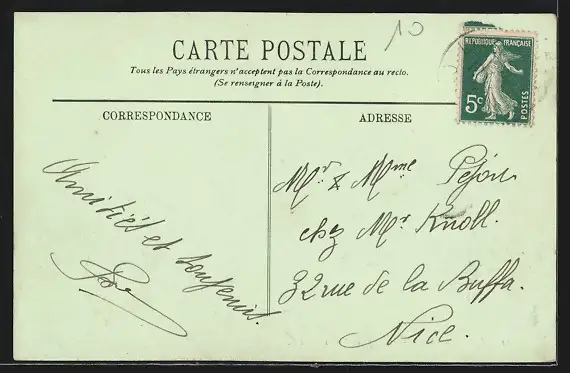 10
CARTE POSTALE
Tous les Pays étrangers n'acceptent pas la Correspondance au recto.
(Se renseigner à la Poste).
CORRESPONDANCE
ADRESSE
REPUBLIQUE FRANÇAISE
5c
POSTES
Amitiés et
souvenir.
Mr & Mme
chez Mr Knoll.
32 rue de la Buffa.
Nice.